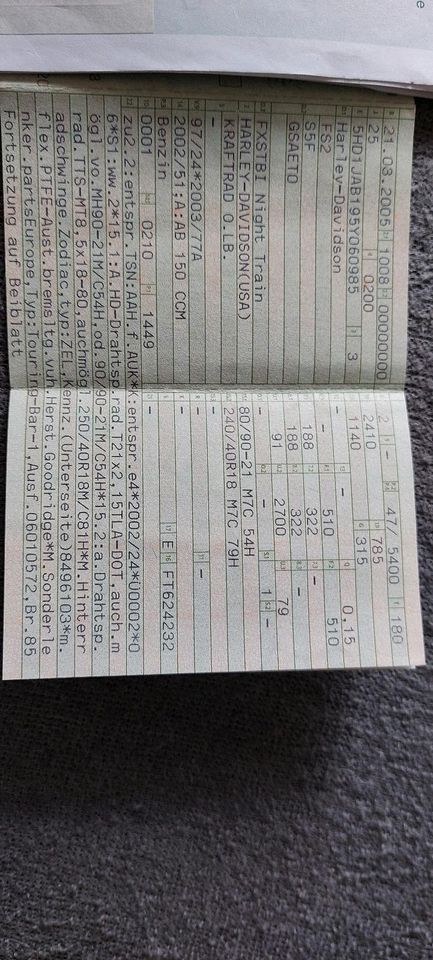 21.03.2005 1008 00000000
25 0200
5HD1JAB195Y060985 3
Harley-Davidson
FS2
S5F
GSAETO
FXSTBI Night Train
HARLEY-DAVIDSON(USA)
KRAFTRAD O.LB.
-
97/24*2003/77A
2002/51;A;AB 150 CCM
Benzin
0001 0210 1449
2 - 47/ 5400 180
2410 785
1140 315
- - 0,15
- 510 510
188 322 -
188 322 -
91 2700 79
- - 1 -
80/90-21 M7C 54H
240/40R18 M7C 79H
-
- -
-
- E FT624232
-
zu2.2:entspr.TSN:AAH.f.AUK*K:entspr.e4*2002/24*00002*0
6*S1:ww.2*15.1:A.HD-Drahtsp.rad.T21x2.15TLA-DOT,auch.m
ögl.vo.MH90-21M/C54H,od.90/90-21M/C54H*15.2:a.Drahtsp.
rad.TTS-MT8,5x18-80,auchmögl.250/40R18M/C81H*M.Hinterr
adschwinge.Zodiac,typ:ZEL,Kennz.(Unterseite)8496103*m.
flex.PTFE-Aust.bremsltg.vuh.Herst.Goodridge*M.Sonderle
nker.partsEurope,Typ:Touring-Bar-1,Ausf.06010572,Br.85
Fortsetzung auf Beiblatt